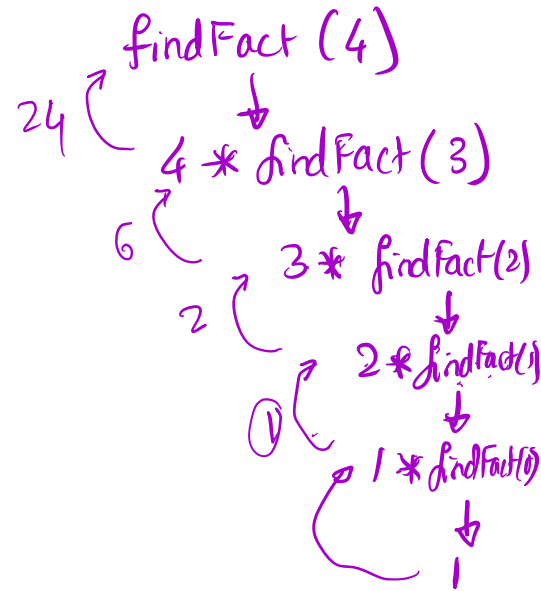 findFact (4)
24
4 * findFact (3)
6
3 * findFact(2)
2
2 * findFact(1)
1
1 * findFact(0)
1